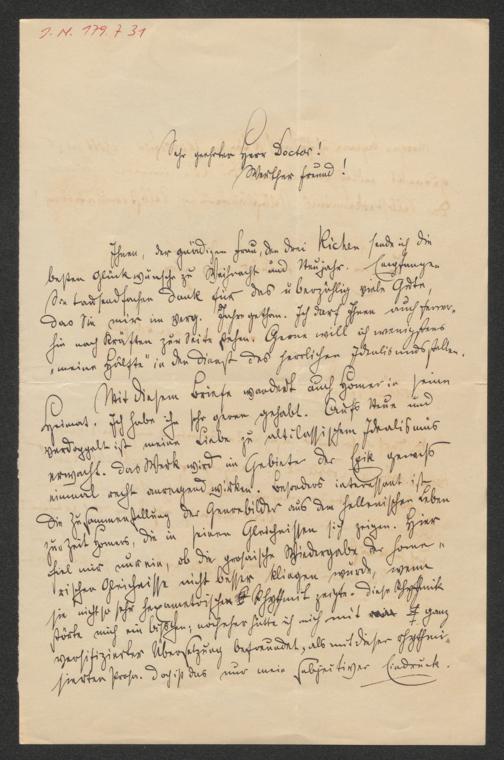 J. N. 179.731
Sehr geehrter Herr Doctor!
Werther Freund!
Ihnen, der gnädigen Frau, den drei Kichen sende ich die
besten Glückwünsche zu Weihnacht und Neujahr. Empfangen
Sie tausendfachen Dank für das überzählig viele Gute,
das Sie mir im verg. Jahre gethan. Ich darf Ihnen auch ferner-
hin nach Kräften zur Seite stehen. Gerne will ich wenigstens
„meine Hälfte" in den Dienst des herrlichen Idealismus stellen.
Mit diesem Briefe wandert auch Homer in seine
Heimat. Ich habe ihn sehr gerne gehabt. Aufs Neue und
verdoppelt ist meine Liebe zu altclassischem Idealismus
erwacht. Das Werk wird im Gebiete der Epik gewiss
einmal recht anregend wirken. Besonders interessant ist
die Zusammenstellung der Genrebilder aus dem hellenischen Leben
zur Zeit Homers, die in seinen Gleichnissen sich zeigen. Hier
fiel mir nur ein, ob die prosaische Wiedergabe der home-
rischen Gleichnisse nicht besser klingen würde, wenn
sie nicht so sehr hexametrischen Rhythmik zeigte. Diese Rhythmik
störte mich ein bißchen; nachher hätte ich mich mit ganz
versifizierter Übersetzung befreundet, als mit dieser rhythmi-
sierten Prosa. Doch ist das nur mein subjectiver Eindruck.